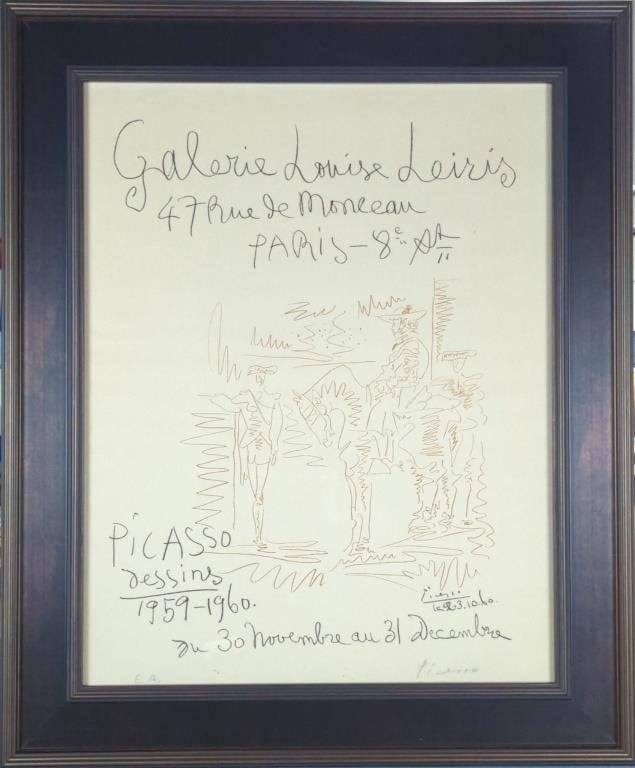 Galerie Louise Leiris
47 Rue de Monceau
PARIS - 8e
PiCASSO
dessins
1959-1960.
du 30 Novembre au 31 Decembre
Picasso
3.10.60.
E.A.
Picasso